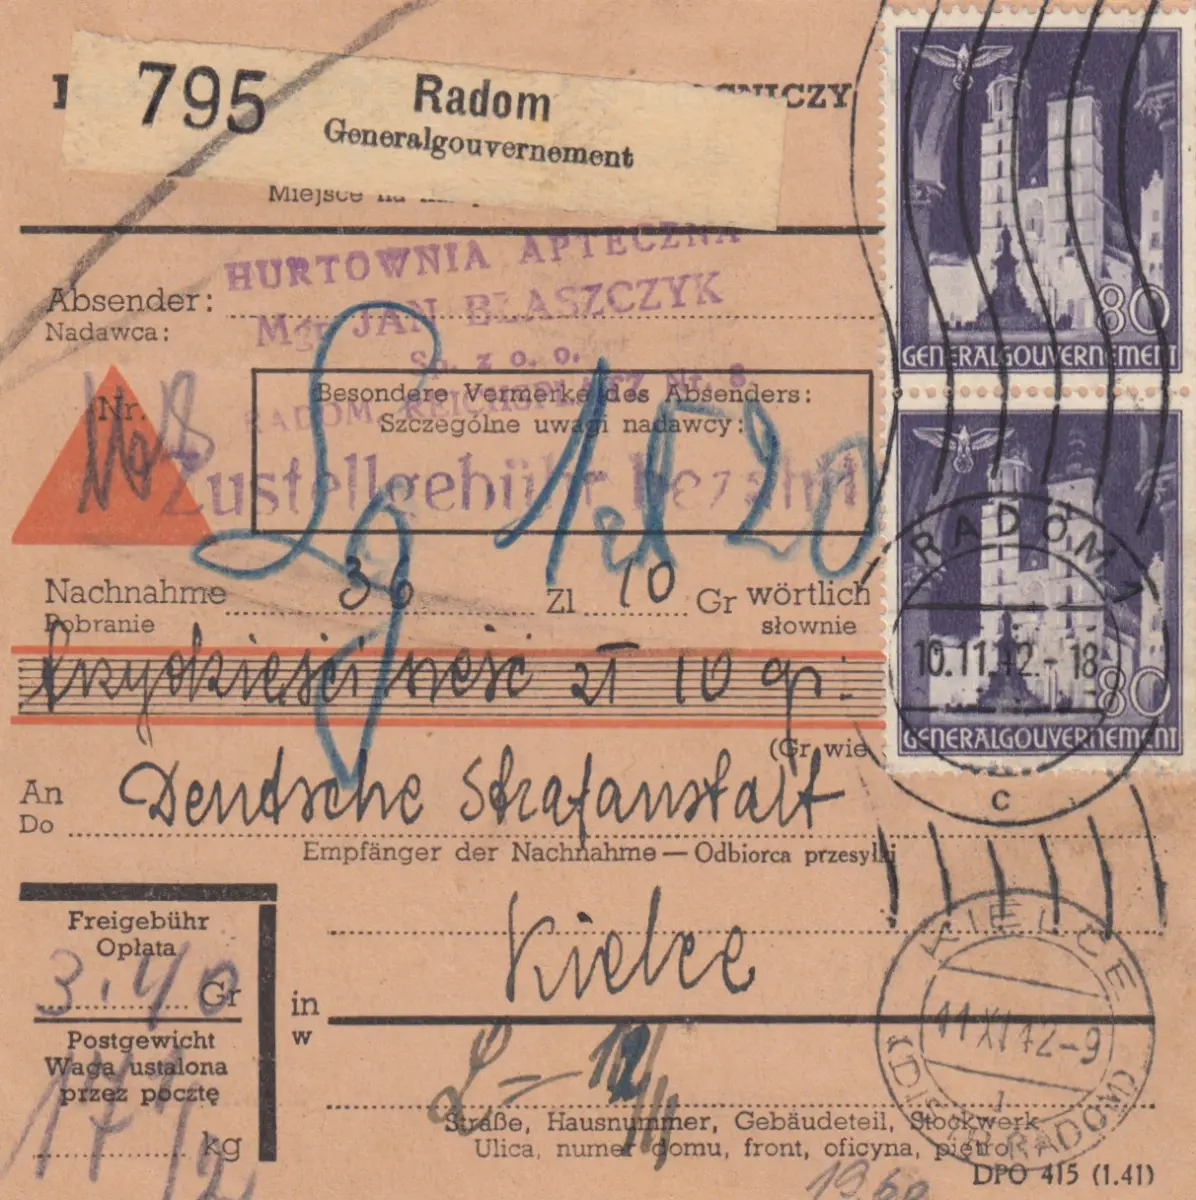 795
Radom
Generalgouvernement
GNICZY
Miejsce na
HURTOWNIA APTECZNA
Mgr JAN BŁASZCZYK
Sp. z o. o.
RADOM, REICHSPLATZ Nr. 8.
Absender:
Nadawca:
Nr.
Besondere Vermerke des Absenders:
Szczególne uwagi nadawcy:
Zustellgebühr bezahlt
Lg 1zł 20
Nachnahme 36 Zl 10 Gr wörtlich
Pobranie słownie
trzydzieści sześć zł 10 gr.
(Gr wie
An Deutsche Strafanstalt
Do
Empfänger der Nachnahme — Odbiorca przesyłki
Freigebühr
Opłata
3.40 Gr
Postgewicht
Waga ustalona
przez pocztę
17 1/2 kg
in Kielce
w
12/11
Straße, Hausnummer, Gebäudeteil, Stockwerk
Ulica, numer domu, front, oficyna, piętro
DPO 415 (1.41)
80
GENERALGOUVERNEMENT
80
GENERALGOUVERNEMENT
RADOM 1
10.11.42.-18
c
KIELCE
11 XI 42-9
(DISTR. RADOM)